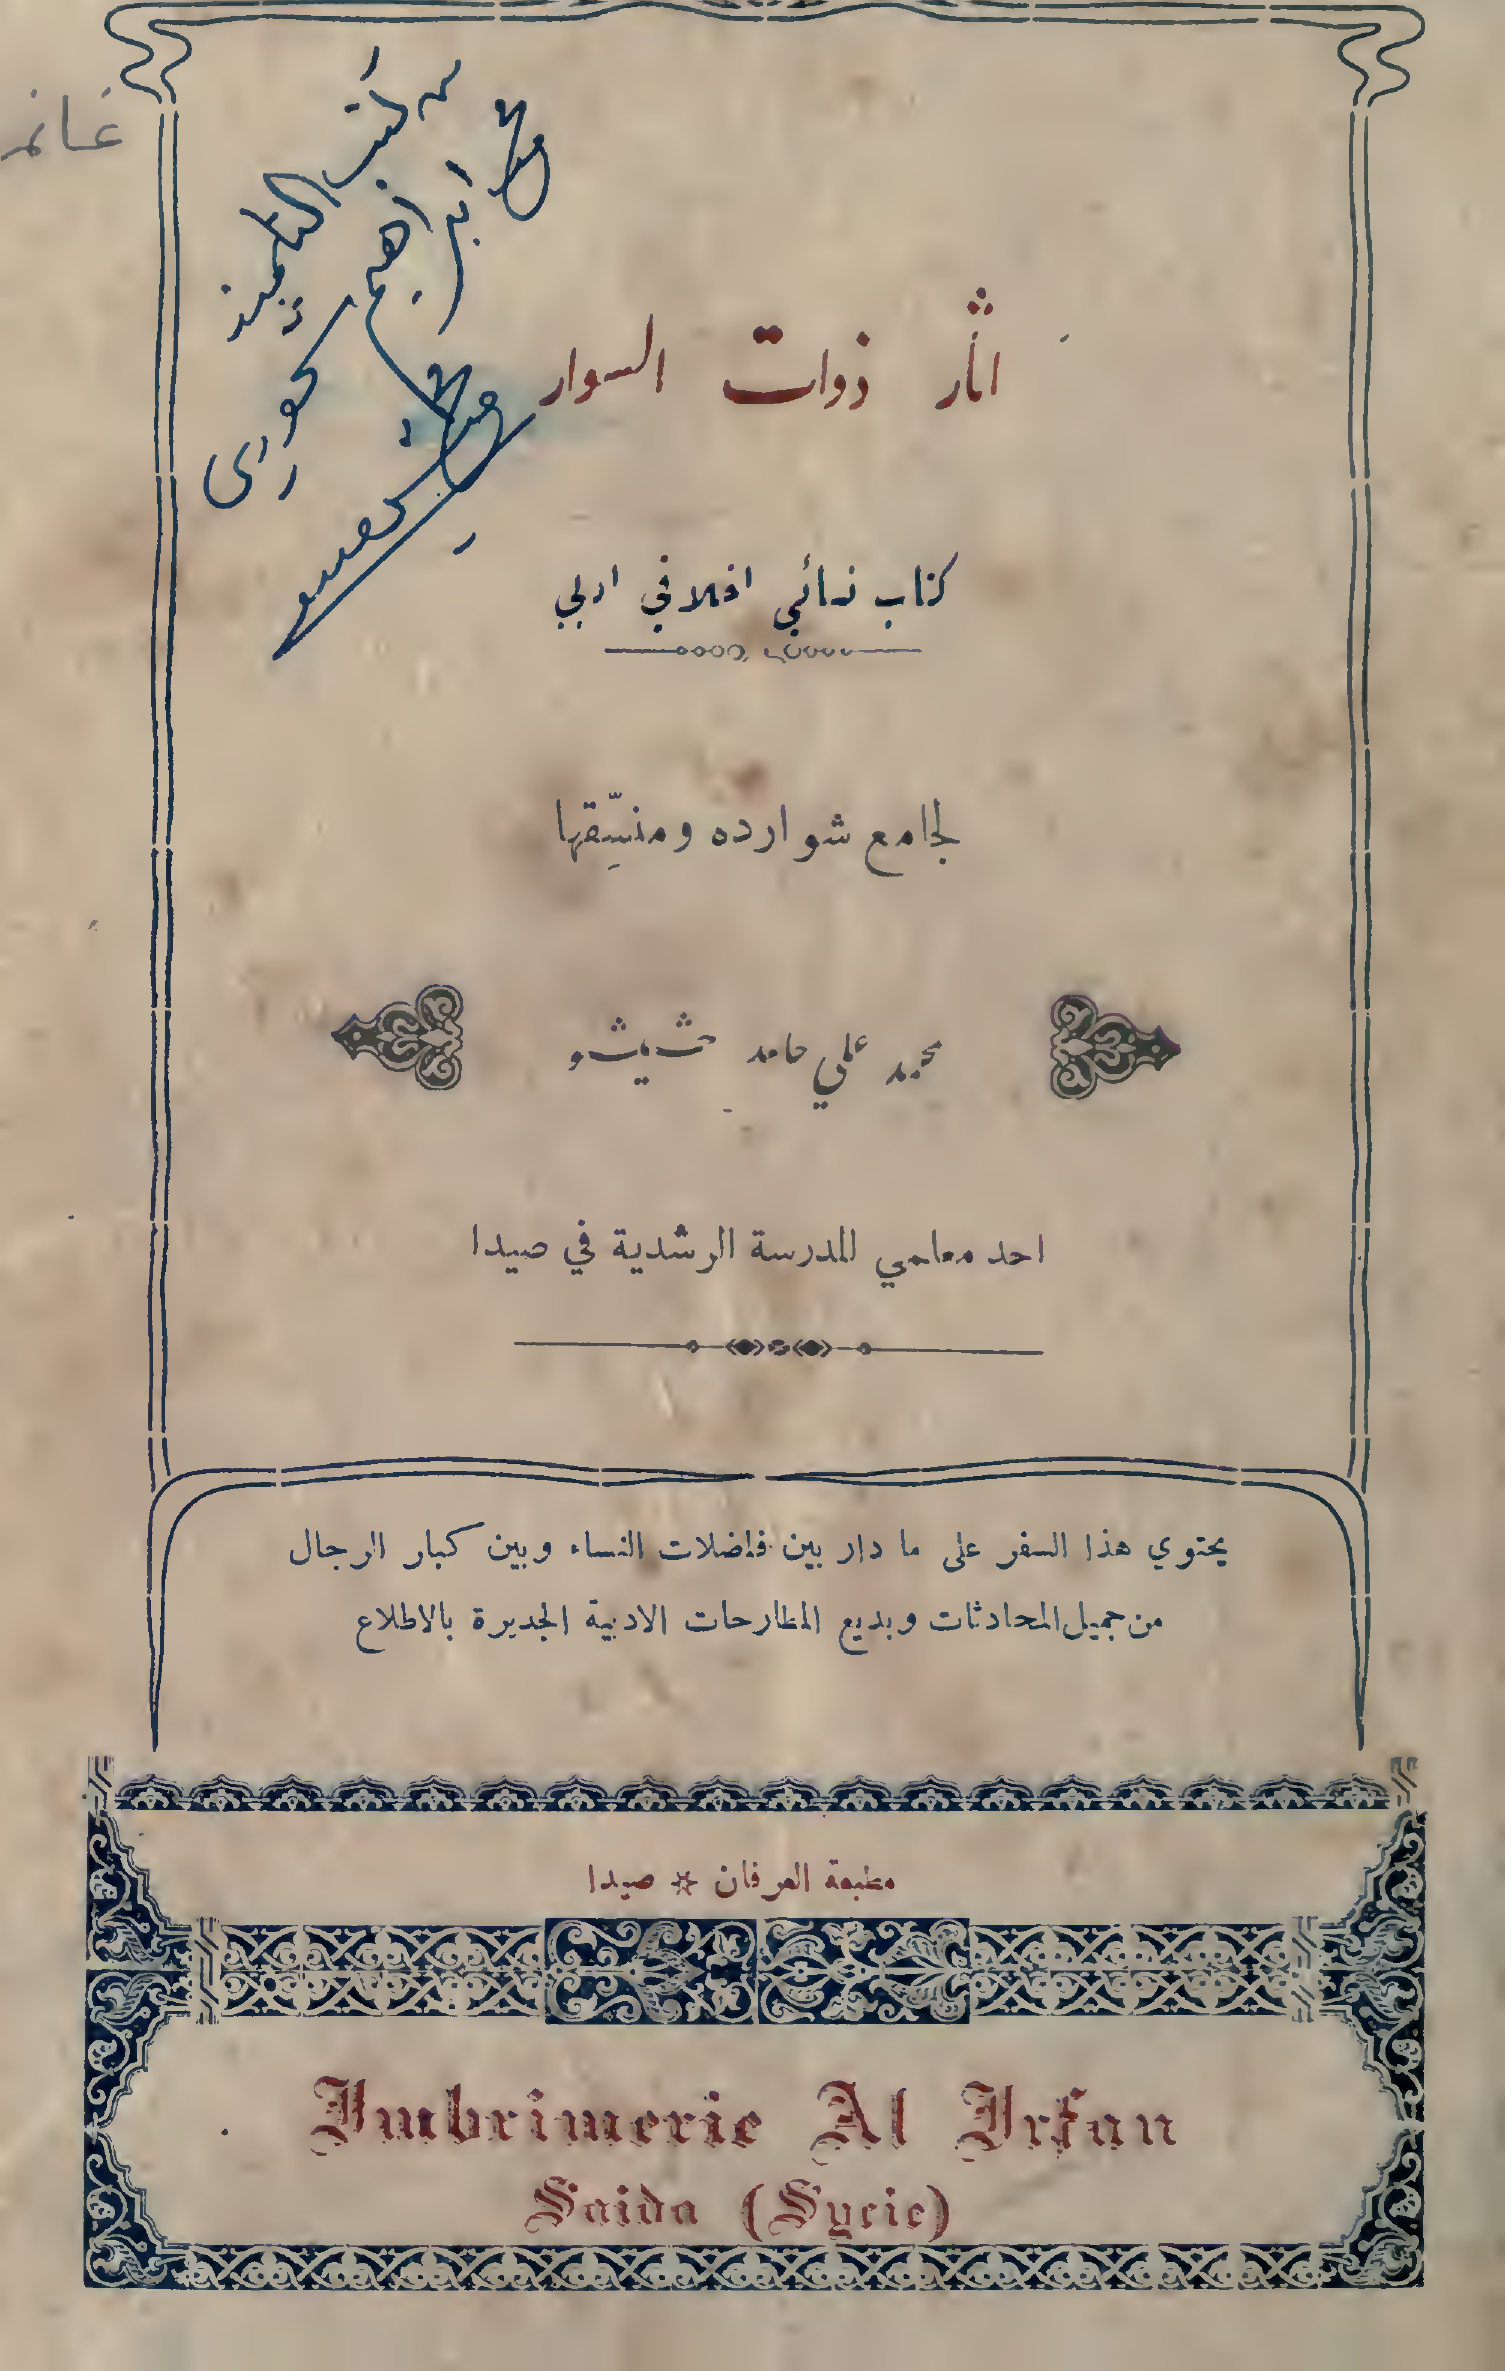 غانم
من كتب التلميذ
ابراهيم خوري
اثار ذوات السوار
كتاب نسائي اخلاقي ادبي
لجامع شوارده ومنسّقها
محمد علي حامد حشيشو
احد معلمي المدرسة الرشدية في صيدا
يحتوي هذا السفر على ما دار بين فاضلات النساء وبين كبار الرجال
من جميل المحادثات وبديع المطارحات الادبية الجديرة بالاطلاع
مطبعة العرفان * صيدا
Imbrimerie Al Irfan
Saida (Syrie)